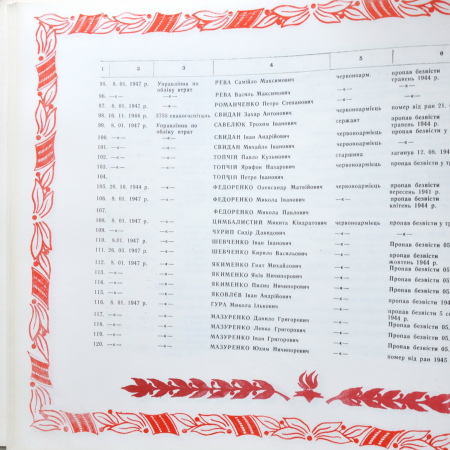 1 2 3 4 5 6
95. 8. 01. 1947 р. Управління по обліку втрат РЕВА Самійло Максимович червоноарм. пропав безвісти травень 1944 р.
96. —«— —«— РЕВА Василь Максимович —«— —«—
97. 8. 01. 1947 р. —«— РОМАНЧЕНКО Петро Степанович —«— —«—
98. 16. 11. 1986 р. 3755 евакогоспіталь СВИДАН Захар Антонович червоноармієць помер від ран 21.
99. 8. 01. 1947 р. Управління по обліку втрат САВЕЛЮК Трохим Іванович сержант пропав безвісти травень 1944 р.
100. —«— —«— СВИДАН Іван Андрійович червоноармієць пропав безвісти у
101. —«— —«— СВИДАН Михайло Іванович —«— —«—
102. —«— —«— ТОПЧІЙ Павло Кузьмович старшина загинув 12. 08. 194
103. —«— —«— ТОПЧІЙ Ярифон Назарович червоноармієць пропав безвісти у т
104. ТОПЧІЙ Петро Іванович
105. 28. 10. 1944 р. —«— ФЕДОРЕНКО Олександр Матвійович червоноармієць пропав безвісти вересень 1941 р.
106. 8. 01. 1947 р. —«— ФЕДОРЕНКО Микола Іванович —«— пропав безвісти квітень 1944 р.
107. ФЕДОРЕНКО Микола Павлович
108. 8. 01. 1947 р. —«— ЦИМБАЛИСТИЙ Микита Кіндратович червоноармієць пропав безвісти у тр
109. —«— —«— ЧУРИП Сидір Давидович —«— —«—
110. 8.01. 1947 р. —«— ШЕВЧЕНКО Іван Іванович —«— Пропав безвісти 05.
111. 26. 03. 1947 р. —«— ШЕВЧЕНКО Кирило Васильович —«— пропав безвісти жовтень 1944 р.
112. 8. 01. 1947 р. —«— ЯКИМЕНКО Гнат Михайлович —«— Пропав безвісти 05.
113. —«— —«— ЯКИМЕНКО Яків Ничипорович —«— Пропав безвісти 05.
114. —«— —«— ЯКИМЕНКО Пилип Ничипорович —«— Пропав безвісти 05.
115. —«— —«— ЯКОВЛЕВ Іван Андрійович —«— Пропав безвісти 05.
116. 8. 01. 1947 р. —«— ГУРА Микола Ількович —«— пропав безвісти 194
117. —«— —«— МАЗУРЕНКО Данило Григорович —«— пропав безвісти 5 се 1944 р.
118. —«— —«— МАЗУРЕНКО Григорович —«— Пропав безвісти 05.
119. —«— —«— МАЗУРЕНКО Іван Григорович —«— Пропав безвісти 05.
120. —«— —«— МАЗУРЕНКО Юхим Ничипорович —«— помер від ран 1945